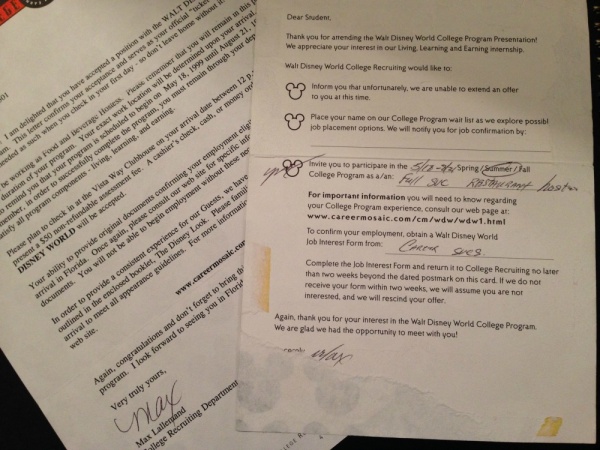 001
I am delighted that you have accepted a position with the WALT
This letter confirms your acceptance and serves as your official
needed as such when you check in your first day - so don't leave home without it
be working as Food and Beverage Hostess. Please remember that you will remain in this
duration of your program. Your exact work location will be determined upon your arrival
remind you that your program is scheduled to begin on May 18, 1999 until August 21,
In order to successfully complete the program, you must remain through your
satisfy all program components - living, learning, and earning.
Please plan to check in at the Vista Way Clubhouse on your arrival date between 12 p.
present a $50 non-refundable assessment fee. A cashier's check, cash, or money
DISNEY WORLD will be accepted.
Your ability to provide original documents confirming your employment
arrival in Florida. Once again, please consult our web site for specific
documents. You will not be able to begin employment without these
In order to provide a consistent experience for our Guests, we have
outlined in the enclosed booklet, The Disney Look. Please
arrival to meet all appearance guidelines. For more information
web site.
www.careermosaic.com
Again, congratulations and don't forget to bring
program. I look forward to seeing you in
Very truly yours,
Max
Max Lallemand
College Recruiting Department
Dear Student,
Thank you for attending the Walt Disney World College Program Presentation!
We appreciate your interest in our Living, Learning and Earning internship.
Walt Disney World College Recruiting would like to:
Inform you that unfortunately, we are unable to extend an offer
to you at this time.
Place your name on our College Program wait list as we explore possibl
job placement options. We will notify you for job confirmation by:
Invite you to participate in the Spring / Summer / Fall
College Program as a/an: Full SVC RESTAURANT hostess
For important information you will need to know regarding
your College Program experience, consult our web page at:
www.careermosaic.com/cm/wdw/wdw1.html
To confirm your employment, obtain a Walt Disney World
Job Interest Form from: Career svcs
Complete the Job Interest Form and return it to College Recruiting no later
than two weeks beyond the dated postmark on this card. If we do not
receive your form within two weeks, we will assume you are not
interested, and we will rescind your offer.
Again, thank you for your interest in the Walt Disney World College Program.
We are glad we had the opportunity to meet with you!
Max